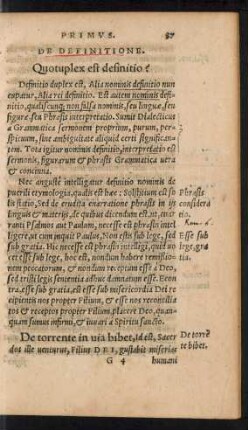 PRIMVS. 87
DE DEFINITIONE.
Quotuplex est definitio?
Definitio duplex est, Alia nominis definitio nun
cupatur, Alia rei definitio. Est autem nominis defi-
nitio, qualiscunque non falsa nominis, seu linguæ, seu
figuræ, seu Phrasis interpretatio. Sumit Dialectica
a Grammatica sermonem proprium, purum, per-
spicuum, sine ambiguitate aliquid certi significan-
tem. Tota igitur nominis definitio, interpretatio est
sermonis, figurarum &amp; phrasis Grammatica uera
&amp; concinna.
Nec anguste intelligatur definitio nominis de
puerili etymologia, qualis est hæc: Solstitium est so
lis statio, Sed de erudita enarratione phrasis in
linguis &amp; materijs, de quibus dicendum est, ut, enar
ranti Psalmos aut Paulum, necesse est phrasin intel
ligere, ut cum inquit Paulus, Non estis sub lege, sed
sub gratia. Hic necesse est phrasin intelligi, quid uo
cet esse sub lege, hoc est, nondum habere remissio-
nem peccatorum, &amp; nondum receptum esse a Deo,
sed tristi legis sententia adhuc damnatum esse. Econ
tra, esse sub gratia, est esse sub misericordia Dei re
cipientis nos propter Filium, &amp; esse nos reconcilia
tos &amp; receptos propter Filium, placere Deo, quan-
quam sumus infirmi, &amp; iuuari a Spiritu sancto.
De torrente in uia bibet, Id est, Sacer
dos ille uenturus, Filius DEI, gustabit miserias
G 4 humani
Phrasis
considera
Esse sub
lege, gra
tia.
De torrẽ
te bibet.